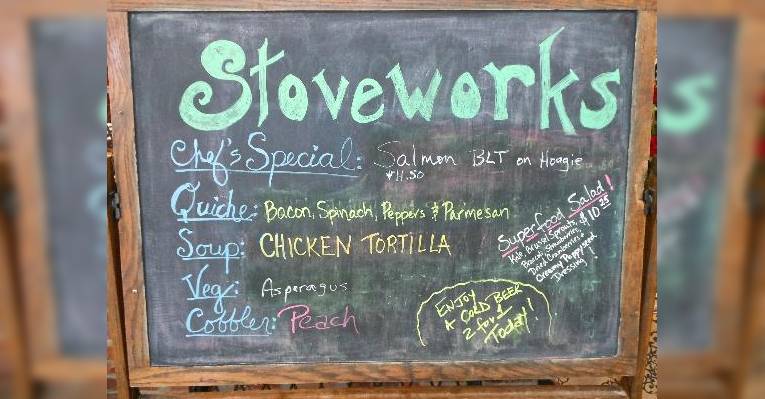 Stoveworks
Chef's Special: Salmon BLT on Hoagie
$11.50
Quiche: Bacon, Spinach, Peppers & Parmesan
Soup: CHICKEN TORTILLA
Veg: Asparagus
Cobbler: Peach
Superfood Salad!
Kale, Brussel Sprouts, $10.25
Broccoli, Strawberries,
Dried Cranberries &
Creamy Poppyseed
Dressing!
ENJOY
A COLD BEER
2 for 1
Today!